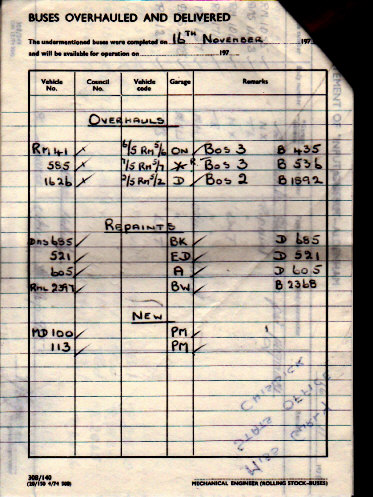 BUSES OVERHAULED AND DELIVERED
The undermentioned buses were completed on 16TH NOVEMBER 197
and will be available for operation on 197
Vehicle No. Council No. Vehicle code Garage Remarks
OVERHAULS
RM 41 6/5 RM 5/6 ON Bos 3 B 435
585 7/5 RM 5/7 R. Bos 3 B 536
1626 2/5 RM 5/2 D Bos 2 B 1592
REPAINTS
DMS 685 BK D 685
521 ED D 521
605 A D 605
RML 2397 BW B 2368
NEW
MD 100 PM
113 PM
CHISWICK
STATS OFFICE
MISS
308/140
MECHANICAL ENGINEER (ROLLING STOCK—BUSES)